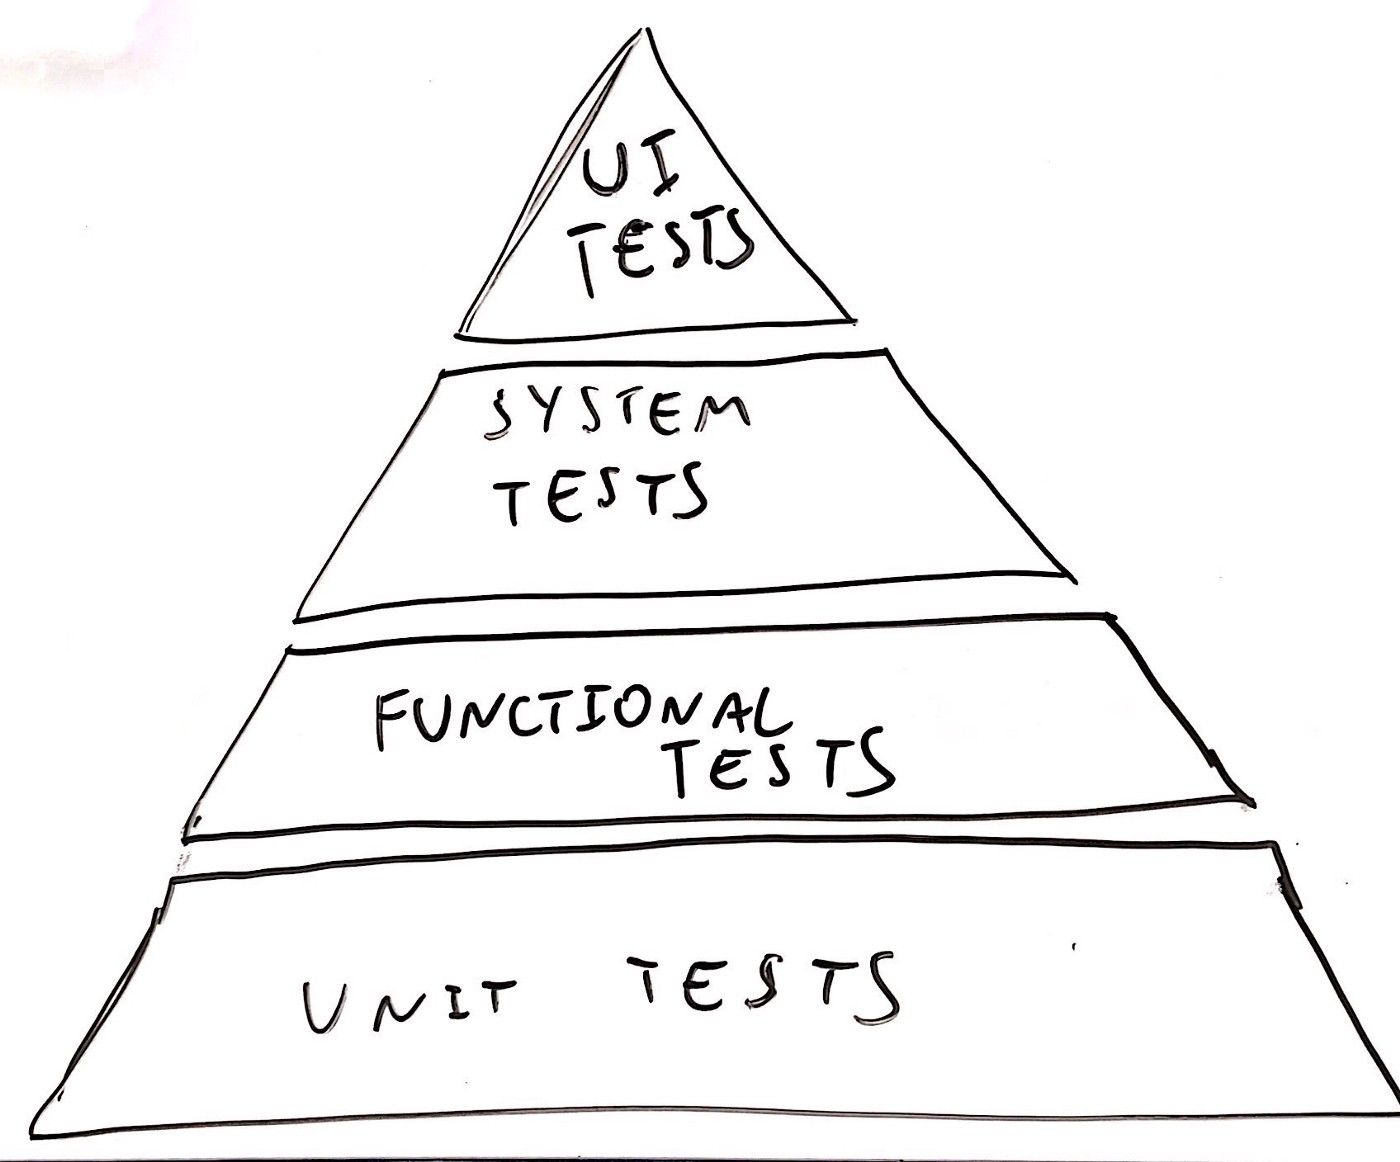 UI
TESTS
SYSTEM
TESTS
FUNCTIONAL
TESTS
UNIT TESTS